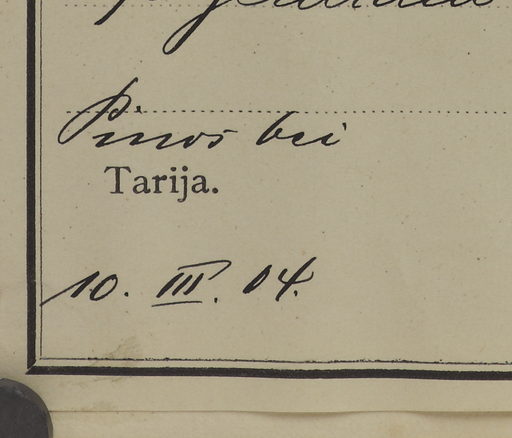 Pinos bei
Tarija.
10. III. 04.